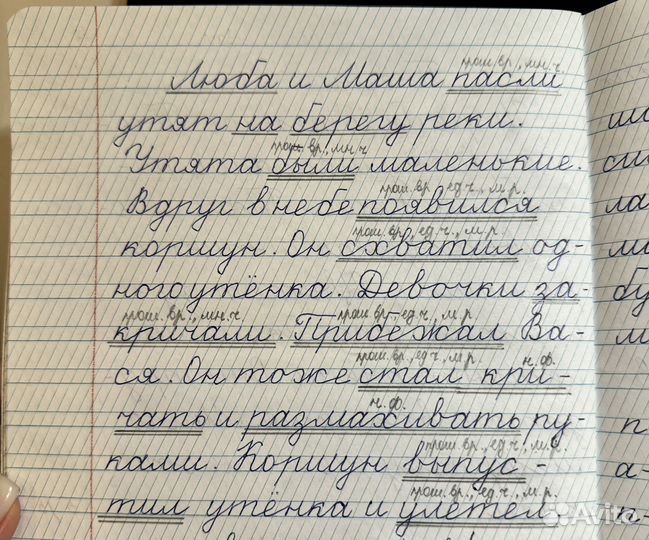 прош. вр., мн. ч.
Люба и Маша пасли
утят на берегу реки.
прош. вр., мн. ч
Утята были маленькие.
прош. вр., ед. ч., м. р.
Вдруг в небе появился
прош. вр., ед. ч., м. р.
коршун. Он схватил од-
ного утёнка. Девочки за-
прош. вр., мн. ч. прош. вр., ед. ч., м. р.
кричали. Прибежал Ва-
прош. вр., ед. ч., м. р. н. ф.
ся. Он тоже стал кри-
н. ф.
чать и размахивать ру-
прош. вр., ед. ч., м. р.
ками. Коршун выпус-
прош. вр., ед. ч., м. р.
тил утёнка и улетел.
Avito